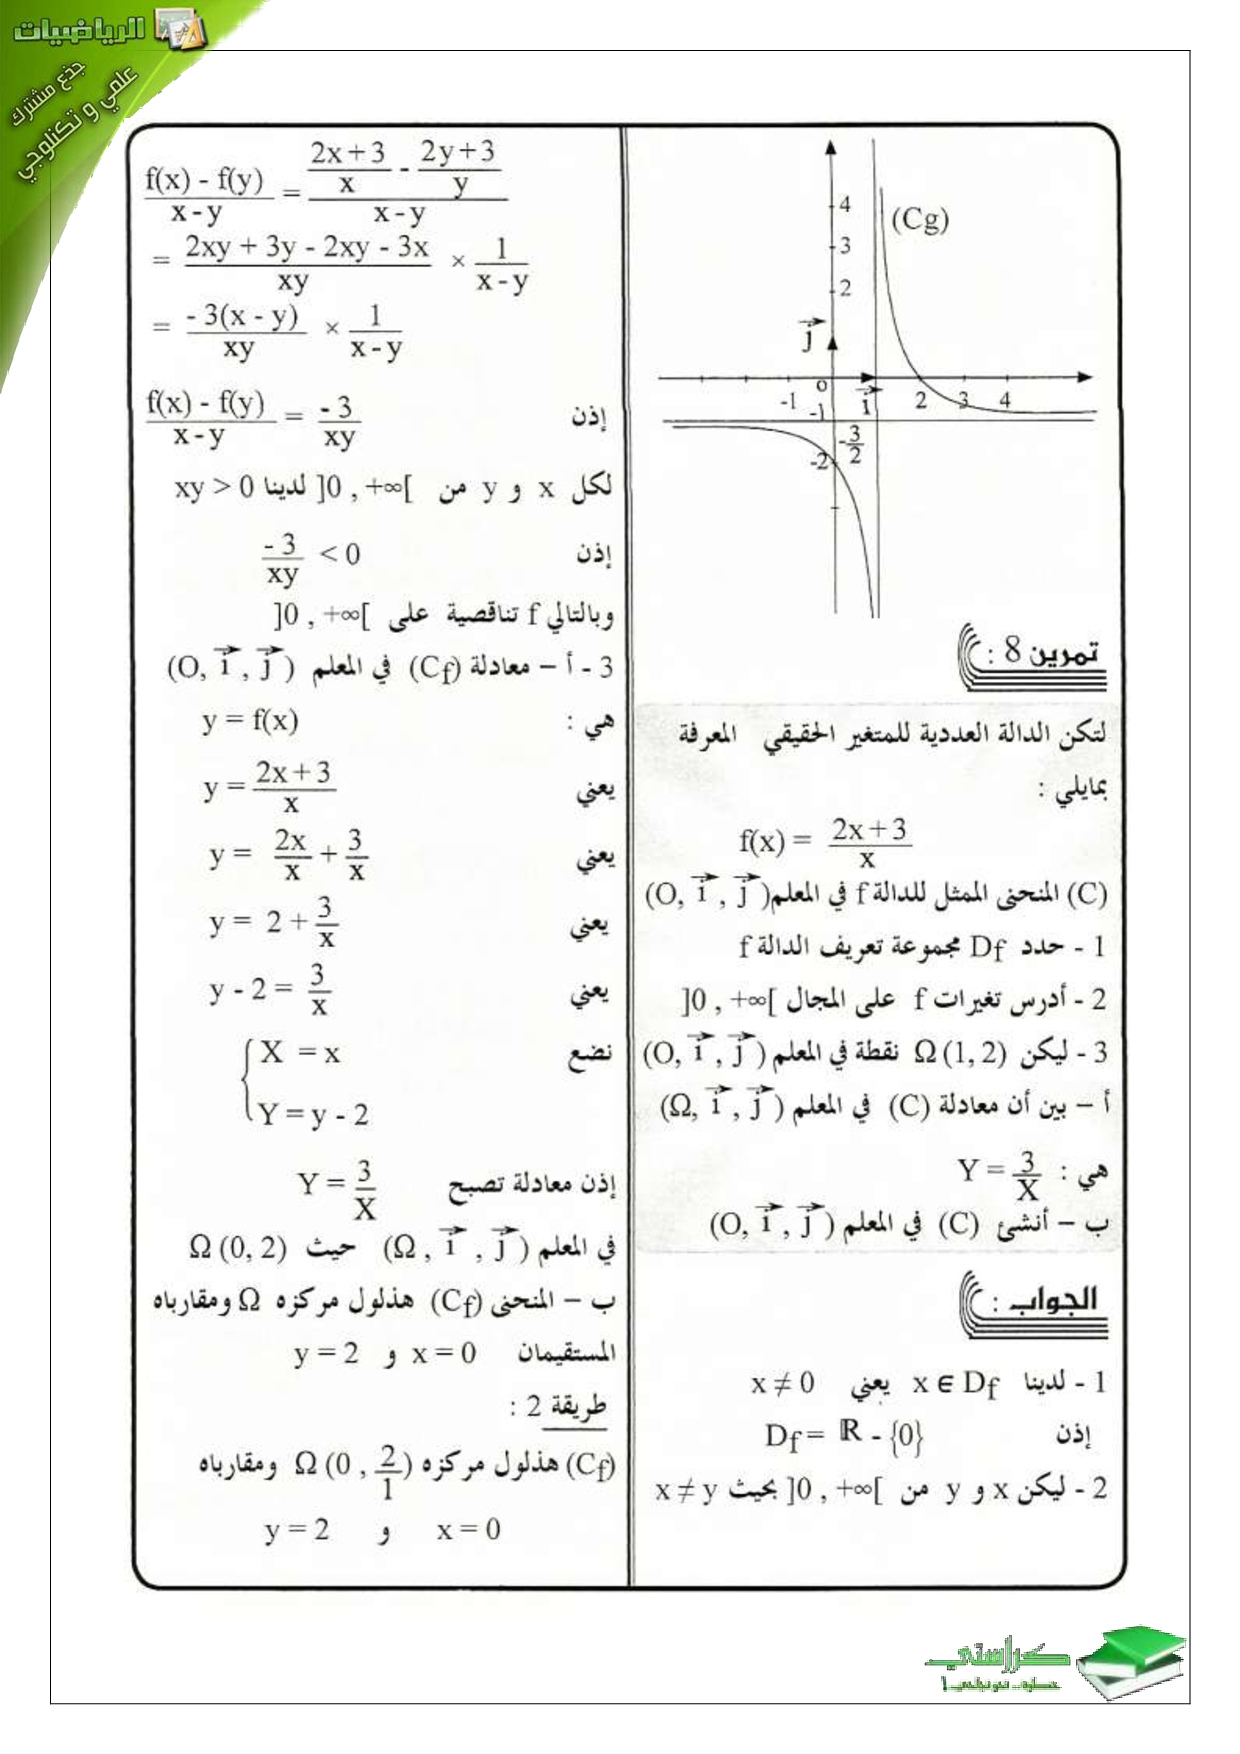 الرياضيات
جذع مشترك
علمي و تكنلوجي
4
(Cg)
3
2
j
o
-1
-1
i
2
3
4
-3/2
-2
تمرين 8 :
لتكن الدالة العددية للمتغير الحقيقي المعرفة
بمايلي :
f(x) = (2x+3)/x
(C) المنحنى الممثل للدالة f في المعلم (O, i, j)
1 - حدد Df مجموعة تعريف الدالة f
2 - أدرس تغيرات f على المجال ]0 , +∞[
3 - ليكن Ω (1, 2) نقطة في المعلم (O, i, j)
أ – بين أن معادلة (C) في المعلم (Ω, i, j)
هي : Y = 3/X
ب – أنشئ (C) في المعلم (O, i, j)
الجواب :
1 - لدينا x ∈ Df يعني x ≠ 0
إذن Df = ℝ - {0}
2 - ليكن x و y من ]0 , +∞[ بحيث x ≠ y
(f(x) - f(y))/(x-y) = ((2x+3)/x - (2y+3)/y)/(x-y)
= (2xy + 3y - 2xy - 3x)/xy × 1/(x-y)
= -3(x - y)/xy × 1/(x-y)
إذن (f(x) - f(y))/(x-y) = -3/xy
لكل x و y من ]0 , +∞[ لدينا xy > 0
إذن -3/xy < 0
وبالتالي f تناقصية على ]0 , +∞[
3 - أ – معادلة (Cf) في المعلم (O, i, j)
هي : y = f(x)
يعني y = (2x+3)/x
يعني y = 2x/x + 3/x
يعني y = 2 + 3/x
يعني y - 2 = 3/x
نضع { X = x
Y = y - 2
إذن معادلة تصبح Y = 3/X
في المعلم (Ω, i, j) حيث Ω (0, 2)
ب – المنحنى (Cf) هذلول مركزه Ω ومقارباه
المستقيمان x = 0 و y = 2
طريقة 2 :
(Cf) هذلول مركزه Ω (0 , 2/1) ومقارباه
x = 0 و y = 2
كراستي